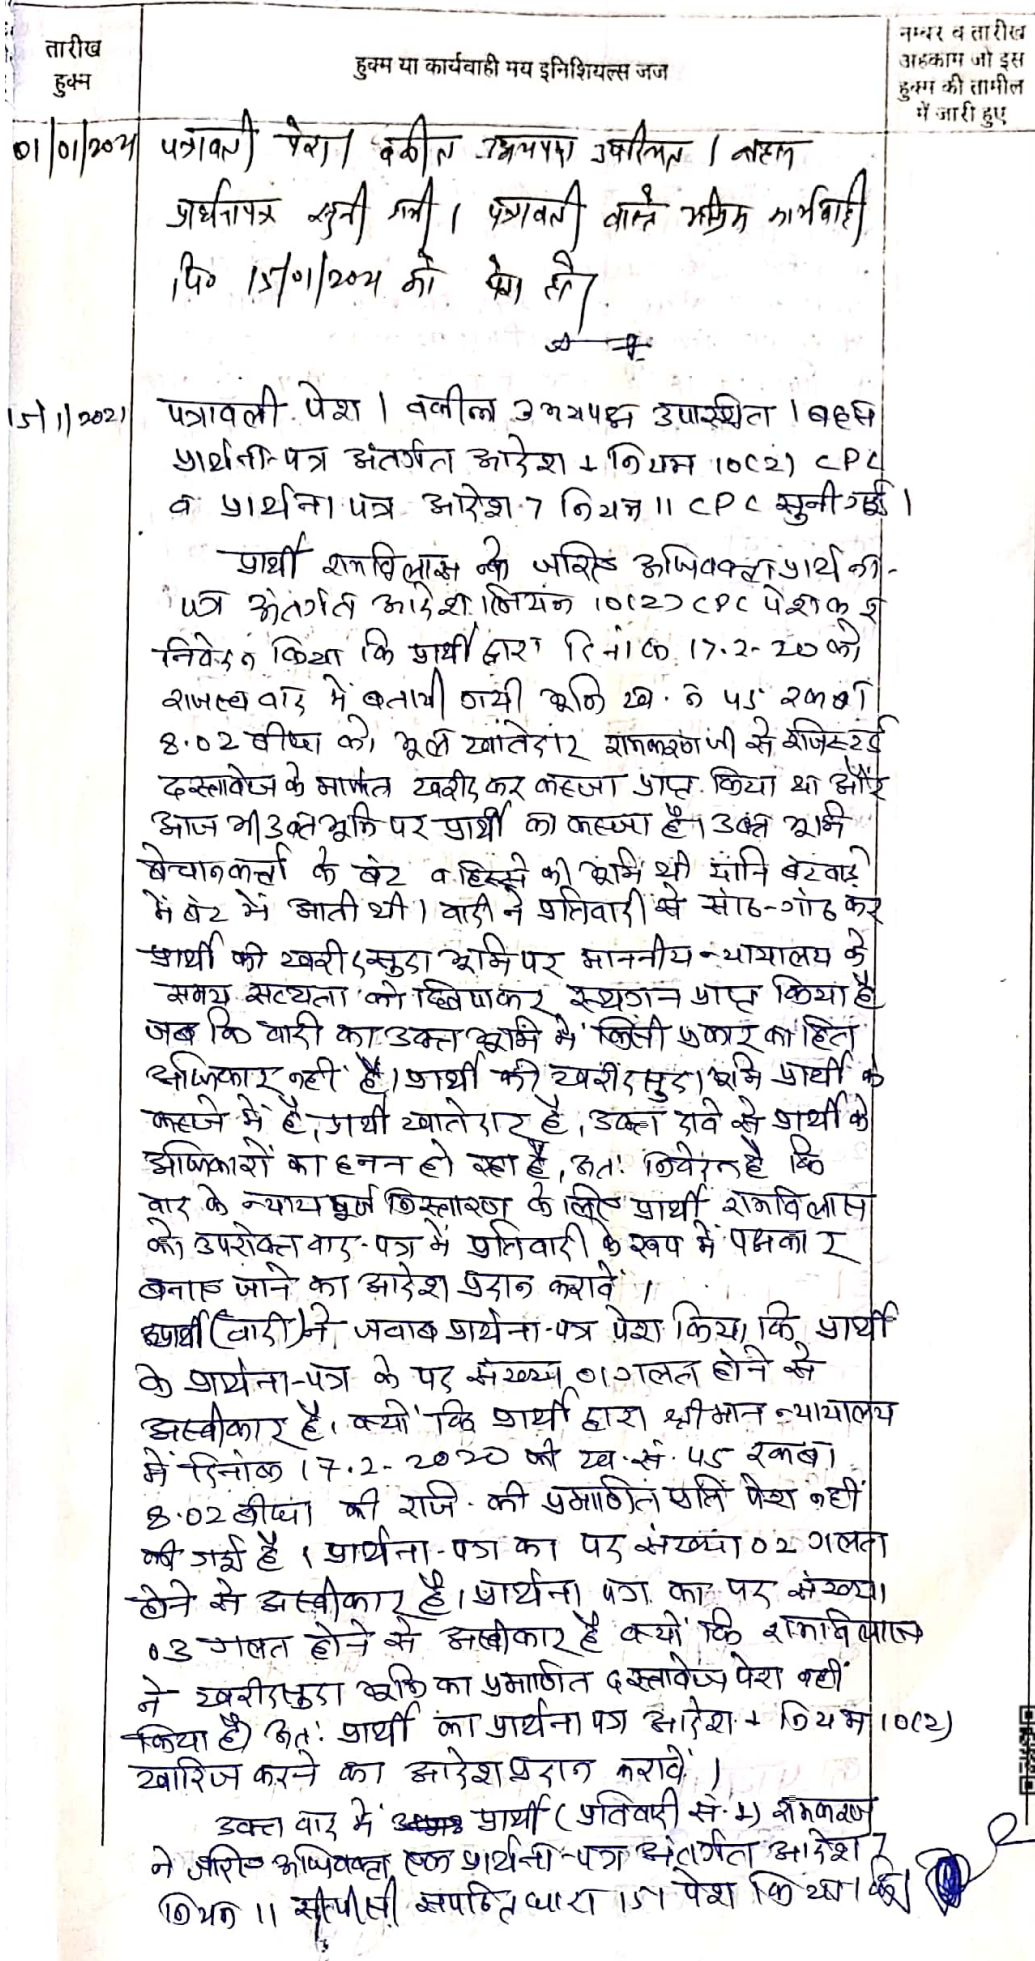 तारीख
हुक्म
हुक्म या कार्यवाही मय इनिशियल्स जज
नम्बर व तारीख
अहकाम जो इस
हुक्म की तामील
में जारी हुए
01/01/2021 पत्रावली पेश। वकील उभयपक्ष उपस्थित। बहस
प्रार्थनापत्र सुनी गयी। पत्रावली वास्ते अग्रिम कार्यवाही
दि० 15/01/2021 को पेश हो।
15/1/2021 पत्रावली पेश। वकील उभयपक्ष उपास्थित। बहस
प्रार्थना-पत्र अंतर्गत आदेश 1 नियम 10(2) CPC
व प्रार्थना पत्र आदेश 7 नियम 11 CPC सुनी गई।
प्रार्थी रामविलास ने जरिए अधिवक्ता प्रार्थना-
पत्र अंतर्गत आदेश 1 नियम 10(2) CPC पेश कर
निवेदन किया कि प्रार्थी द्वारा दिनांक 17.2.20 को
राजस्व वाद में बतायी गयी भूमि ख. न 45 रकबा
8.02 बीघा को मूल खातेदार रामकरण जी से रजिस्टर्ड
दस्तावेज के मार्फत खरीद कर कब्जा प्राप्त किया था और
आज भी उक्त भूमि पर प्रार्थी का कब्जा है। उक्त भूमि
बेचानकर्त्ता के बंट व हिस्से की भूमि थी यानि बंटवाड़े
में बंट में आती थी। वादी ने प्रतिवादी से सांठ-गांठ कर
प्रार्थी की खरीदसुदा भूमि पर माननीय न्यायालय के
समय सत्यता को छिपाकर स्थगन प्राप्त किया है
जब कि वादी का उक्त भूमि में किसी प्रकार का हित
अधिकार नहीं है। प्रार्थी की खरीदसुदा भूमि प्रार्थी के
कब्जे में है, प्रार्थी खातेदार है, उक्त दावे से प्रार्थी के
अधिकारों का हनन हो रहा है, अतः निवेदन है कि
वाद के न्यायपूर्ण निस्तारण के लिए प्रार्थी रामविलास
को उपरोक्त वाद-पत्र में प्रतिवादी के रूप में पक्षकार
बनाए जाने का आदेश प्रदान करावें।
अप्रार्थी (वादी) ने जवाब प्रार्थना-पत्र पेश किया कि प्रार्थी
के प्रार्थना-पत्र के पद संख्या 01 गलत होने से
अस्वीकार है। क्यों कि प्रार्थी द्वारा श्रीमान न्यायालय
में दिनांक 17.2.2020 को ख.सं. 45 रकबा
8.02 बीघा की राजि. की प्रमाणित प्रति पेश नहीं
की गई है। प्रार्थना-पत्र का पद संख्या 02 गलत
होने से अस्वीकार है। प्रार्थना पत्र का पद संख्या
03 गलत होने से अस्वीकार है क्यों कि रामविलास
ने खरीदसुदा भूमि का प्रमाणित दस्तावेज पेश नहीं
किया है। अतः प्रार्थी का प्रार्थना पत्र आदेश 1 नियम 10(2)
खारिज करने का आदेश प्रदान करावें।
उक्त वाद में प्रार्थी (प्रतिवादी सं. 1) रामकरण
ने जरिए अधिवक्ता एक प्रार्थना-पत्र अंतर्गत आदेश 7
नियम 11 सीपीसी सपठित धारा 151 पेश किया कि